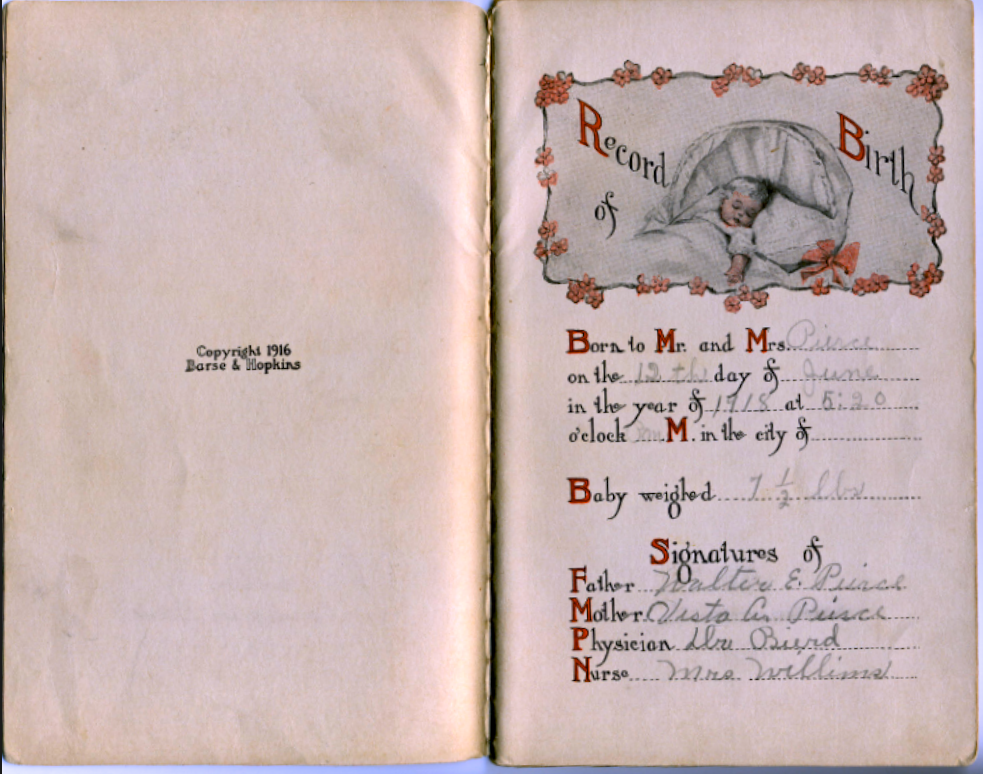 Copyright 1916
Barse & Hopkins
Record of Birth
Born to Mr. and Mrs. Pierce
on the 12 th day of June
in the year of 1918 at 5:20
o'clock M. in the city of
Baby weighed 7 1/2 lbs
Signatures of
Father Walter E. Pierce
Mother Vesta A. Pierce
Physician Dr. Buerd
Nurse Mrs Willims